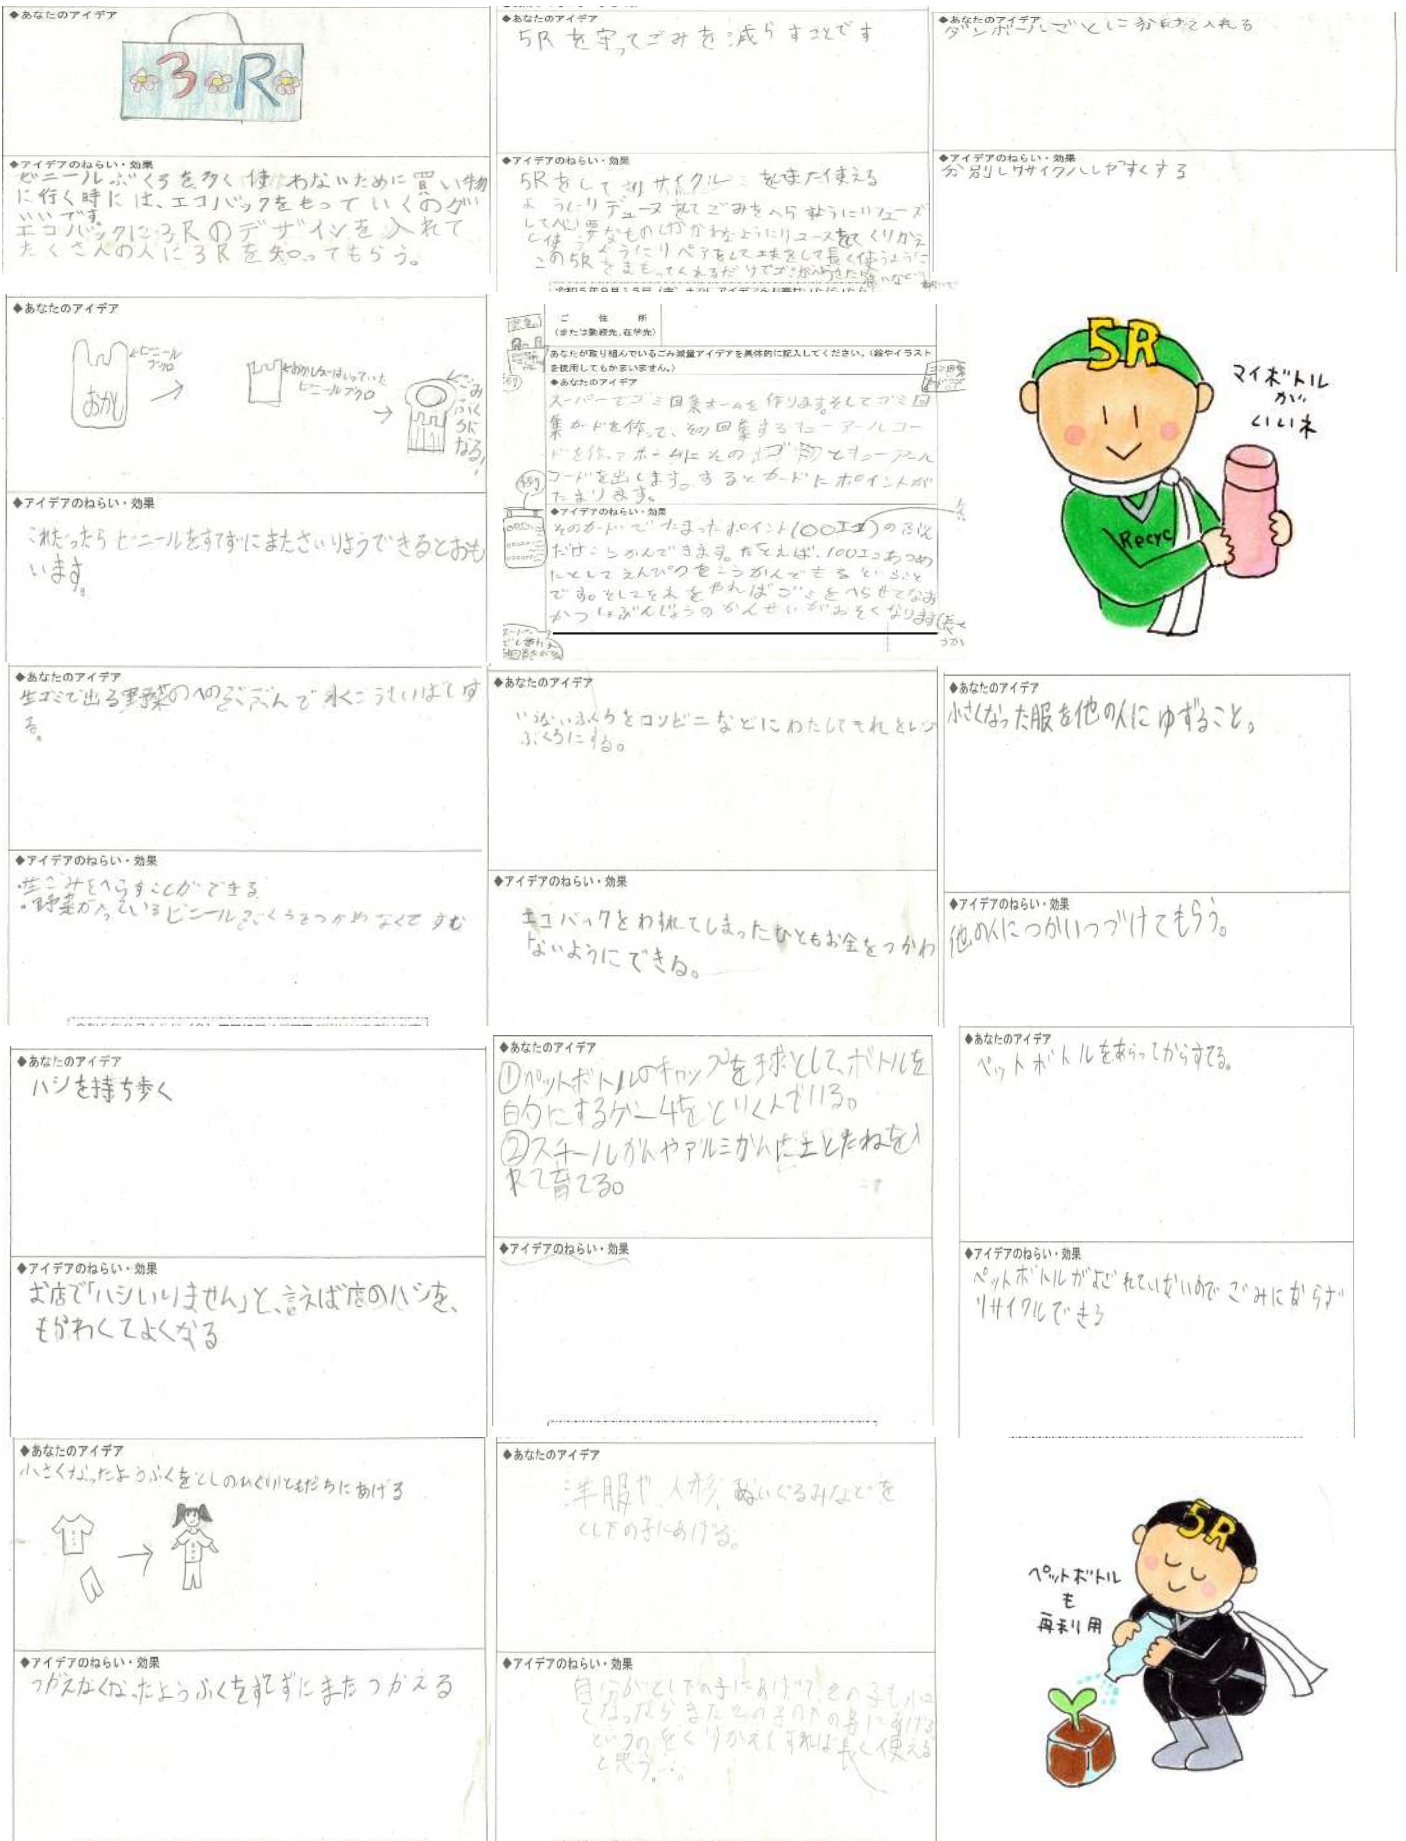 ◆あなたのアイデア
3R
◆アイデアのねらい・効果
ビニールぶくろを多く使わないために買い物
に行く時には、エコバックをもっていくのが
いいです。
エコバックに3Rのデザインを入れて
たくさんの人に3Rを知ってもらう。
◆あなたのアイデア
5Rを守ってごみを減らすことです
◆アイデアのねらい・効果
5Rをしてリサイクル をまた使える
ようにリデュース をしてごみをへらすようにリフューズ
して なものしかかわなようにリユースをしてくりかえ
と使 ようにリペアをして工夫をして長く使うように
この5Rをまもってくれるだけで
◆あなたのアイデア
ダンボールごとに分けて入れる
◆アイデアのねらい・効果
分別しリサイクルしやすくする
◆あなたのアイデア
ビニール
ブクロ
おかし
おかしがはいっていた
ビニールブクロ
ごみ
ぶく
ろに
なる!
◆アイデアのねらい・効果
これだったらビニールをすてずにまたさいりようできるとおも
います。
ご住所
(または勤務先、在学先)
あなたが取り組んでいるごみ減量アイデアを具体的に記入してください。(絵やイラスト
を使用してもかまいません。)
◆あなたのアイデア
スーパーでゴミ回集ホームを作ります。そしてゴミ回
集カードを作って、その回集するキューアールコー
ドを作ってホームにその とキューアール
コードを出します。するとカードにポイントが
たまります。
◆アイデアのねらい・効果
そのカードでたまったポイント(100エコ)の
だけこうかんできます。たとえば、100エコあつめ
たとしてえんぴつをこうかんできるということ
です。そしてそれをやればごみをへらせてなお
かつしょぶんじょうのかんせいがおそくなります
5R
マイボトル
が
いいネ
Recyc
◆あなたのアイデア
生ゴミで出る野菜の ぶぶんで水こうさいばいす
る。
◆アイデアのねらい・効果
・生ごみをへらすことができる
・野菜が入っているビニールぶくろをつかわなくてすむ
◆あなたのアイデア
いらないふくろをコンビニなどにわたしてそれをレジ
ぶくろにする。
◆アイデアのねらい・効果
エコバックをわすれてしまったひともお金をつかわ
ないようにできる。
◆あなたのアイデア
小さくなった服を他の人にゆずること。
◆アイデアのねらい・効果
他の人につかいつづけてもらう。
◆あなたのアイデア
ハシを持ち歩く
◆アイデアのねらい・効果
お店で「ハシいりません」と、言えば店のハシを、
もらわくてよくなる
◆あなたのアイデア
①ペットボトルのキャップを球として、ボトルを
的にするゲームをとりくんでいる。
②スチールかんやアルミかんに土とたねを入
れて育てる。
◆アイデアのねらい・効果
◆あなたのアイデア
ペットボトルをあらってからすてる。
◆アイデアのねらい・効果
ペットボトルがよごれていないのでごみにならず
リサイクルできる
◆あなたのアイデア
小さくなったようふくをとしのひくいともだちにあげる
◆アイデアのねらい・効果
つかえなくなったようふくをすてずにまたつかえる
◆あなたのアイデア
洋服や人形、ぬいぐるみなどを
とし下の子にあげる。
◆アイデアのねらい・効果
自分がとし下の子にあげてその子も小さ
くなったらまたその子の下の子にあげる
というのをくりかえしすれば長く使える
と思う。
5R
ペットボトル
も
再利用